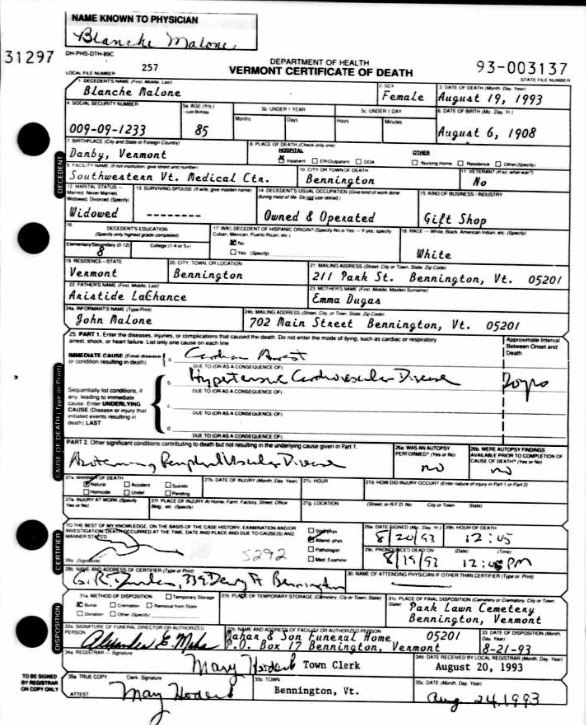 NAME KNOWN TO PHYSICIAN
Blanche Malone
31297
DH-PHS-DTH-89C
DEPARTMENT OF HEALTH
LOCAL FILE NUMBER 257 VERMONT CERTIFICATE OF DEATH 93-003137
STATE FILE NUMBER
1. DECEDENT'S NAME (First, Middle, Last) 2. SEX 3. DATE OF DEATH (Month, Day, Year)
Blanche Malone Female August 19, 1993
4. SOCIAL SECURITY NUMBER 5a. AGE (Yrs.) Last Birthday 5b. UNDER 1 YEAR 5c. UNDER 1 DAY 6. DATE OF BIRTH (Mo., Day, Yr.)
Months Days Hours Minutes
009-09-1233 85 August 6, 1908
7. BIRTHPLACE (City and State or Foreign Country) 8. PLACE OF DEATH (Check only one)
HOSPITAL OTHER
Danby, Vermont X Inpatient ER/Outpatient DOA Nursing Home Residence Other (Specify)
9. FACILITY NAME (If not institution, give street and number) 10. CITY OR TOWN OF DEATH 11. VETERAN (If so, what war?)
Southwestern Vt. Medical Ctr. Bennington No
12. MARITAL STATUS - Married, Never Married, Widowed, Divorced (Specify) 13. SURVIVING SPOUSE (If wife, give maiden name) 14. DECEDENT'S USUAL OCCUPATION (Give kind of work done during most of life. Do not use retired.) 15. KIND OF BUSINESS / INDUSTRY
Widowed -------- Owned & Operated Gift Shop
16. DECEDENT'S EDUCATION (Specify only highest grade completed) 17. WAS DECEDENT OF HISPANIC ORIGIN? (Specify No or Yes - If yes, specify Cuban, Mexican, Puerto Rican, etc.) 18. RACE - White, Black, American Indian, etc. (Specify)
Elementary/Secondary (0-12) College (1-4 or 5+) X No
8 Yes (Specify) White
19. RESIDENCE - STATE 20. CITY, TOWN, OR LOCATION 21. MAILING ADDRESS (Street, City or Town, State, Zip Code)
Vermont Bennington 211 Park St. Bennington, Vt. 05201
22. FATHER'S NAME (First, Middle, Last) 23. MOTHER'S NAME (First, Middle, Maiden Surname)
Aristide LaChance Emma Dugas
24a. INFORMANT'S NAME (Type or Print) 24b. MAILING ADDRESS (Street, City or Town, State, Zip Code)
John Malone 702 Main Street Bennington, Vt. 05201
25. PART 1. Enter the diseases, injuries, or complications that caused the death. Do not enter the mode of dying, such as cardiac or respiratory arrest, shock, or heart failure. List only one cause on each line. Approximate Interval Between Onset and Death
IMMEDIATE CAUSE (Final disease or condition resulting in death) a. Cardiac Arrest
DUE TO (OR AS A CONSEQUENCE OF):
b. Hypertensive Cardiovascular Disease 20 yrs
Sequentially list conditions, if any, leading to immediate cause. Enter UNDERLYING CAUSE (Disease or injury that initiated events resulting in death) LAST
DUE TO (OR AS A CONSEQUENCE OF):
c.
DUE TO (OR AS A CONSEQUENCE OF):
d.
PART 2. Other significant conditions contributing to death but not resulting in the underlying cause given in Part 1. 26a. WAS AN AUTOPSY PERFORMED? (Yes or No) 26b. WERE AUTOPSY FINDINGS AVAILABLE PRIOR TO COMPLETION OF CAUSE OF DEATH? (Yes or No)
Peripheral Vascular Disease no no
27a. MANNER OF DEATH 27b. DATE OF INJURY (Month, Day, Year) 27c. HOUR 27d. HOW DID INJURY OCCUR? (Enter nature of injury in Part 1 or Part 2)
X Natural Accident Suicide
Homicide Under Pending
27e. INJURY AT WORK (Specify Yes or No) 27f. PLACE OF INJURY At Home, Farm, Factory, Street, Office Bldg., etc. (Specify) 27g. LOCATION (Street, or R.F.D. No. City or Town State)
TO THE BEST OF MY KNOWLEDGE, ON THE BASIS OF THE CASE HISTORY, EXAMINATION AND/OR INVESTIGATION, DEATH OCCURRED AT THE TIME, DATE AND PLACE AND DUE TO CAUSE(S) AND MANNER STATED
5292
Attend. phys
Pathologist
Med. Examiner
29a. DATE SIGNED (Mo., Day, Yr.) 29b. HOUR OF DEATH
8/20/93 12:05
29c. PRONOUNCED DEAD ON (Date) (Time)
8/19/93 12:05 PM
28b. NAME AND ADDRESS OF CERTIFIER (Type or Print) 30. NAME OF ATTENDING PHYSICIAN IF OTHER THAN CERTIFIER (Type or Print)
Bennington
31a. METHOD OF DISPOSITION Temporary Storage 31b. PLACE OF TEMPORARY STORAGE (Cemetery, City or Town, State) 31c. PLACE OF FINAL DISPOSITION (Cemetery or Crematory, City or Town, State)
X Burial Cremation Removal from State Park Lawn Cemetery
Donation Other (Specify) Bennington, Vermont
32a. SIGNATURE OF FUNERAL DIRECTOR OR AUTHORIZED PERSON 32b. NAME AND ADDRESS OF FACILITY OR AUTHORIZED PERSON 33. DATE OF DISPOSITION (Month, Day, Year)
Mahar & Son Funeral Home 05201
P.O. Box 17 Bennington, Vermont 8-21-93
34a. REGISTRAR - Signature 34b. DATE RECEIVED BY LOCAL REGISTRAR (Month, Day, Year)
Mary Hodeck Town Clerk August 20, 1993
35a. TRUE COPY Clerk - Signature 35b. TOWN 35c. DATE (Month, Day, Year)
ATTEST Mary Hodeck Bennington, Vt. Aug 24, 1993
TO BE SIGNED BY REGISTRAR ON COPY ONLY
DECEDENT
CAUSE OF DEATH (Type or Print)
CERTIFIER
DISPOSITION